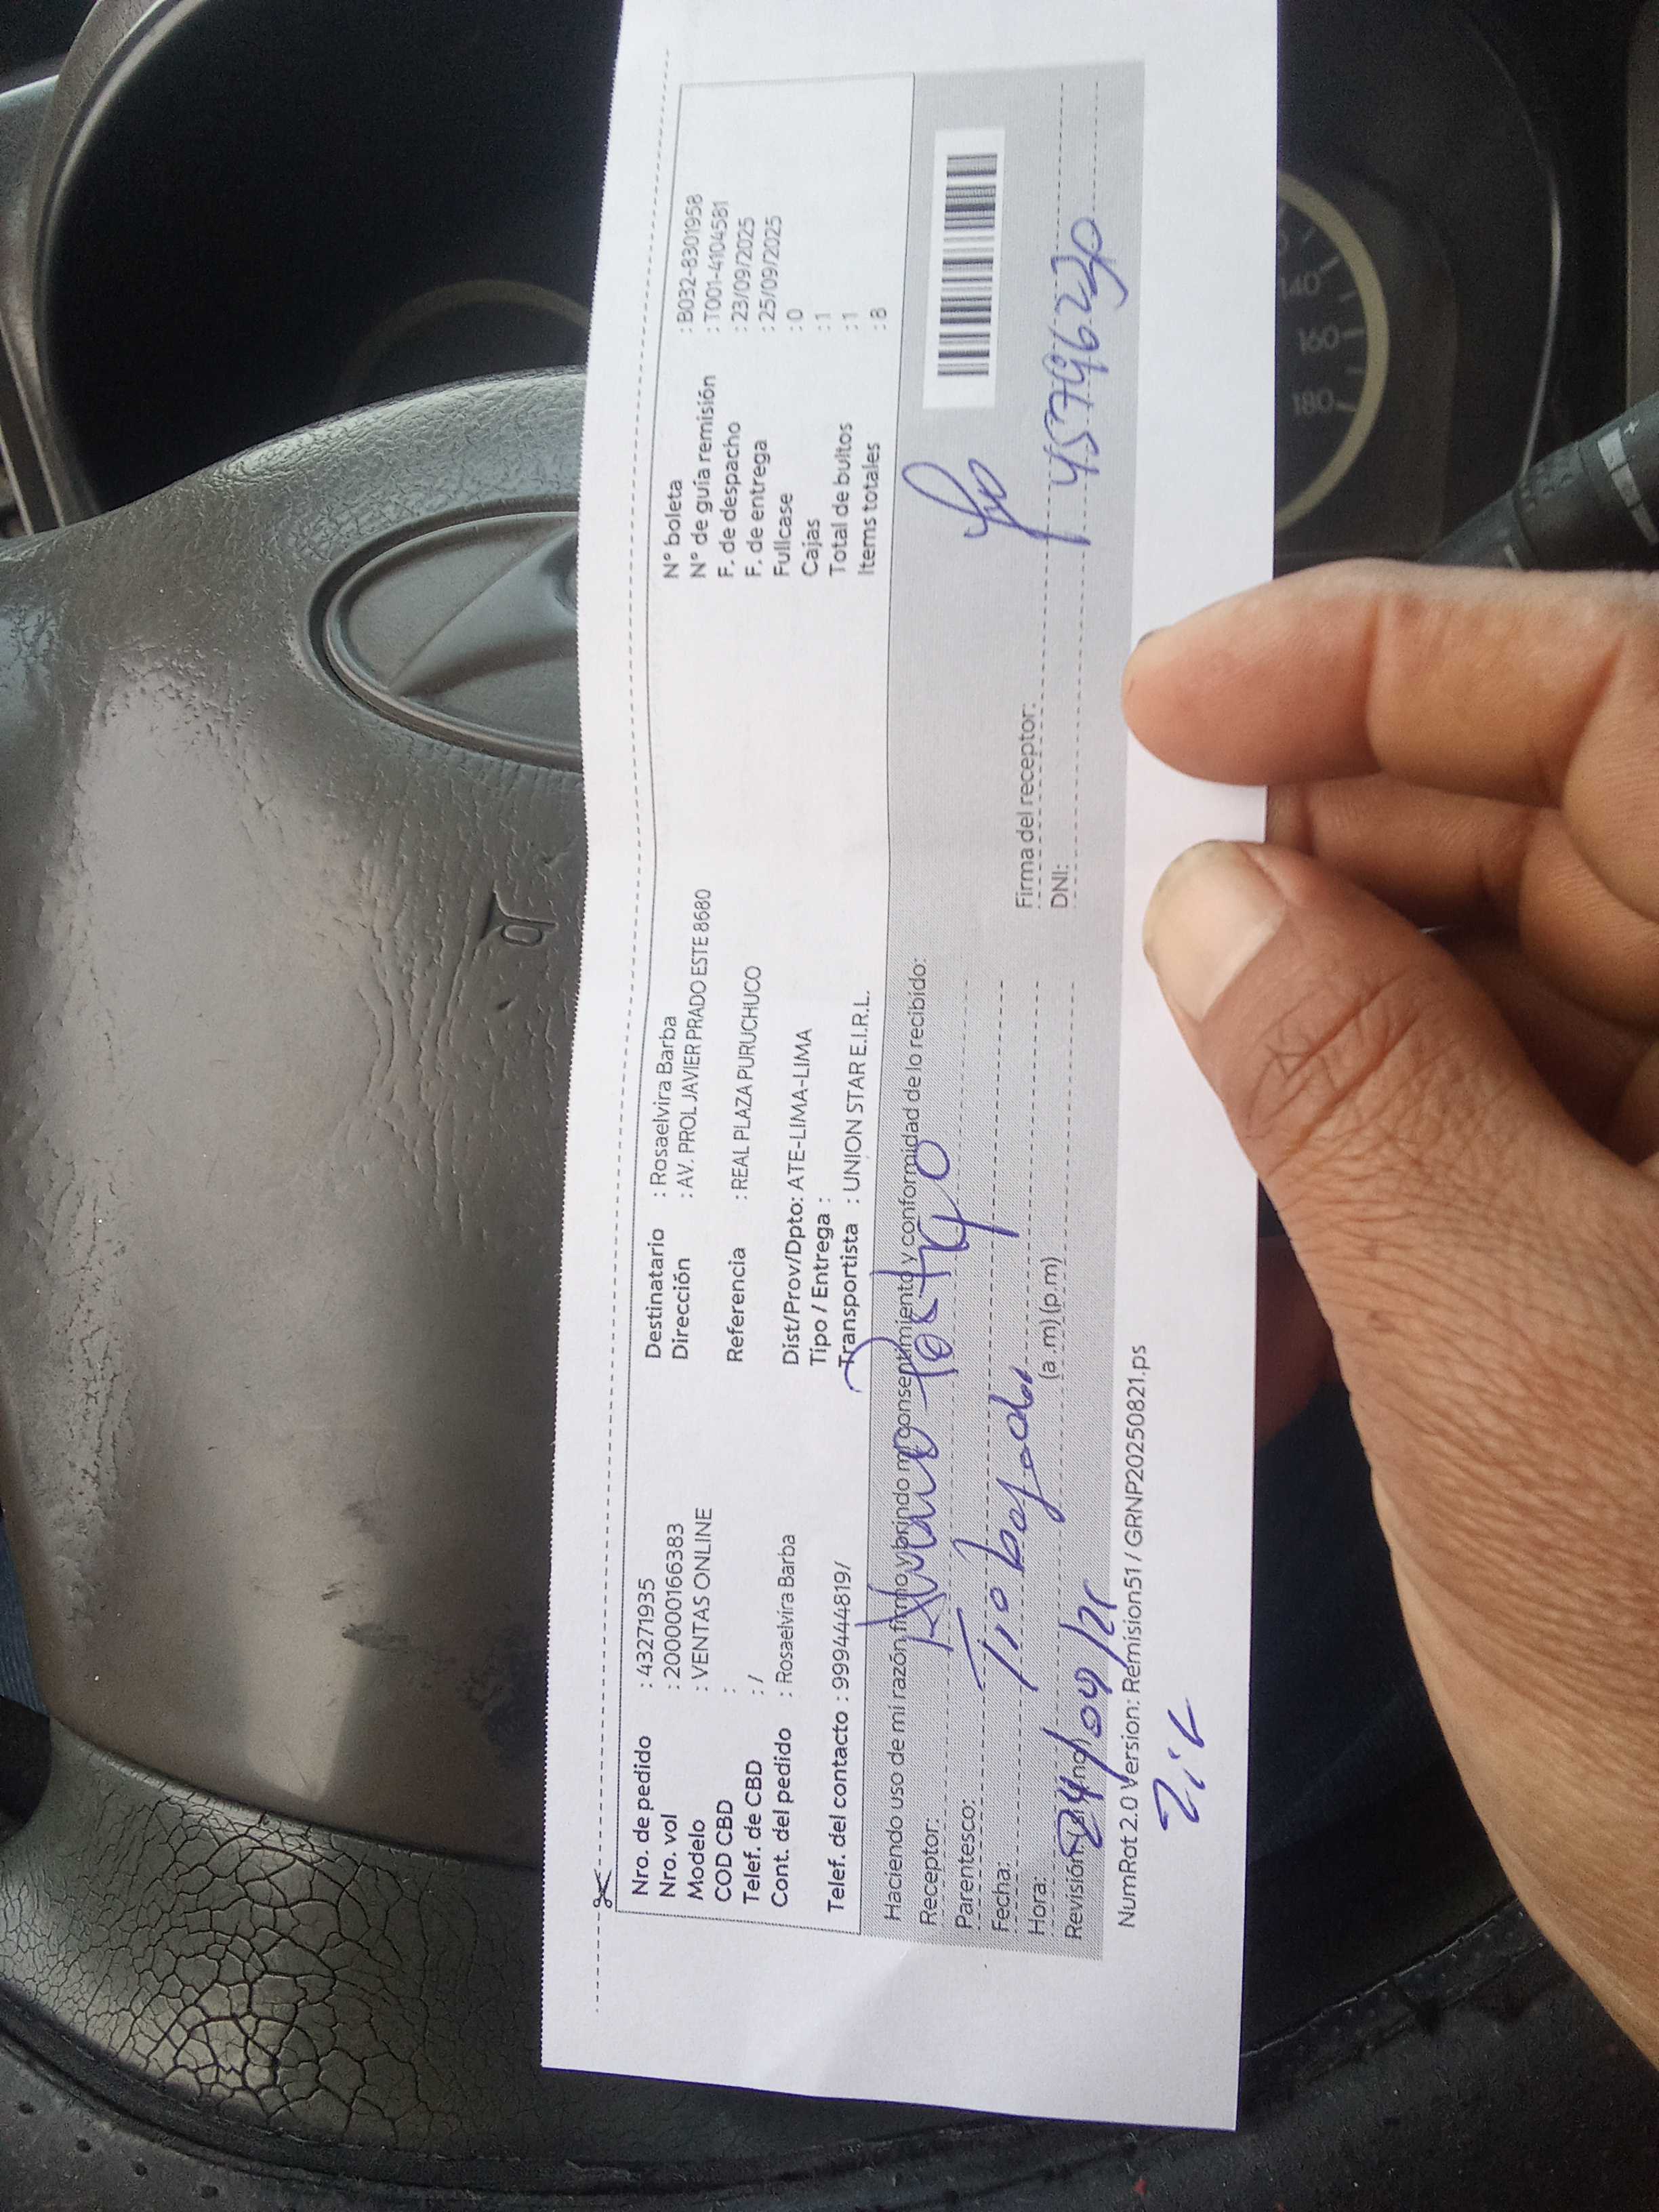 Nro. de pedido : 43271935
Nro. vol : 200000166383
Modelo : VENTAS ONLINE
COD CBD :
Telef. de CBD : /
Cont. del pedido : Rosaelvira Barba
Telef. del contacto : 999444819/
Destinatario : Rosaelvira Barba
Dirección : AV. PROL JAVIER PRADO ESTE 8680
Referencia : REAL PLAZA PURUCHUCO
Dist/Prov/Dpto: ATE-LIMA-LIMA
Tipo / Entrega :
Transportista : UNION STAR E.I.R.L.
N° boleta : B032-8301958
N° de guía remisión : T001-4104581
F. de despacho : 23/09/2025
F. de entrega : 25/09/2025
Fullcase : 0
Cajas : 1
Total de bultos : 1
Items totales : 8
Haciendo uso de mi razón firmo y brindo mi consentimiento y conformidad de lo recibido:
Receptor:
Parentesco:
Fecha:
Hora: (a .m) (p.m)
Firma del receptor:
DNI: 45796230
NumRot 2.0 Version: Remision51 / GRNP20250821.ps
140
160
180